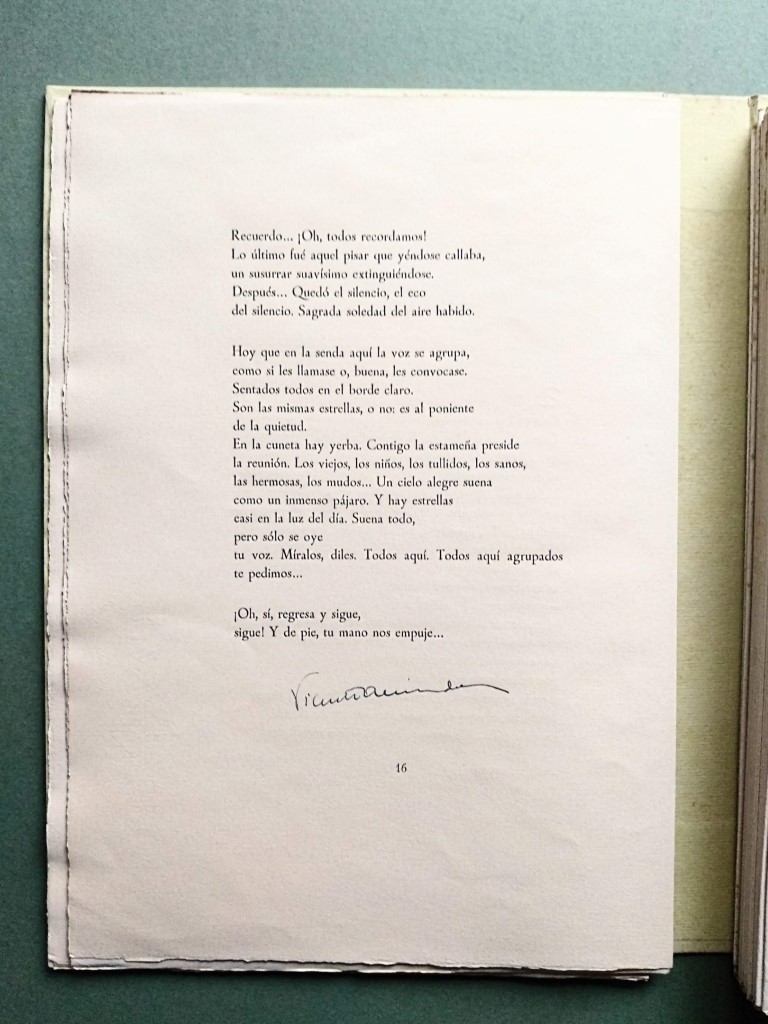 Recuerdo... ¡Oh, todos recordamos!
Lo último fué aquel pisar que yéndose callaba,
un susurrar suavísimo extinguiéndose.
Después... Quedó el silencio, el eco
del silencio. Sagrada soledad del aire habido.
Hoy que en la senda aquí la voz se agrupa,
como si les llamase o, buena, les convocase.
Sentados todos en el borde claro.
Son las mismas estrellas, o no: es al poniente
de la quietud.
En la cuneta hay yerba. Contigo la estameña preside
la reunión. Los viejos, los niños, los tullidos, los sanos,
las hermosas, los mudos... Un cielo alegre suena
como un inmenso pájaro. Y hay estrellas
casi en la luz del día. Suena todo,
pero sólo se oye
tu voz. Míralos, diles. Todos aquí. Todos aquí agrupados
te pedimos...
¡Oh, sí, regresa y sigue,
sigue! Y de pie, tu mano nos empuje...
Vicente Aleixandre
16